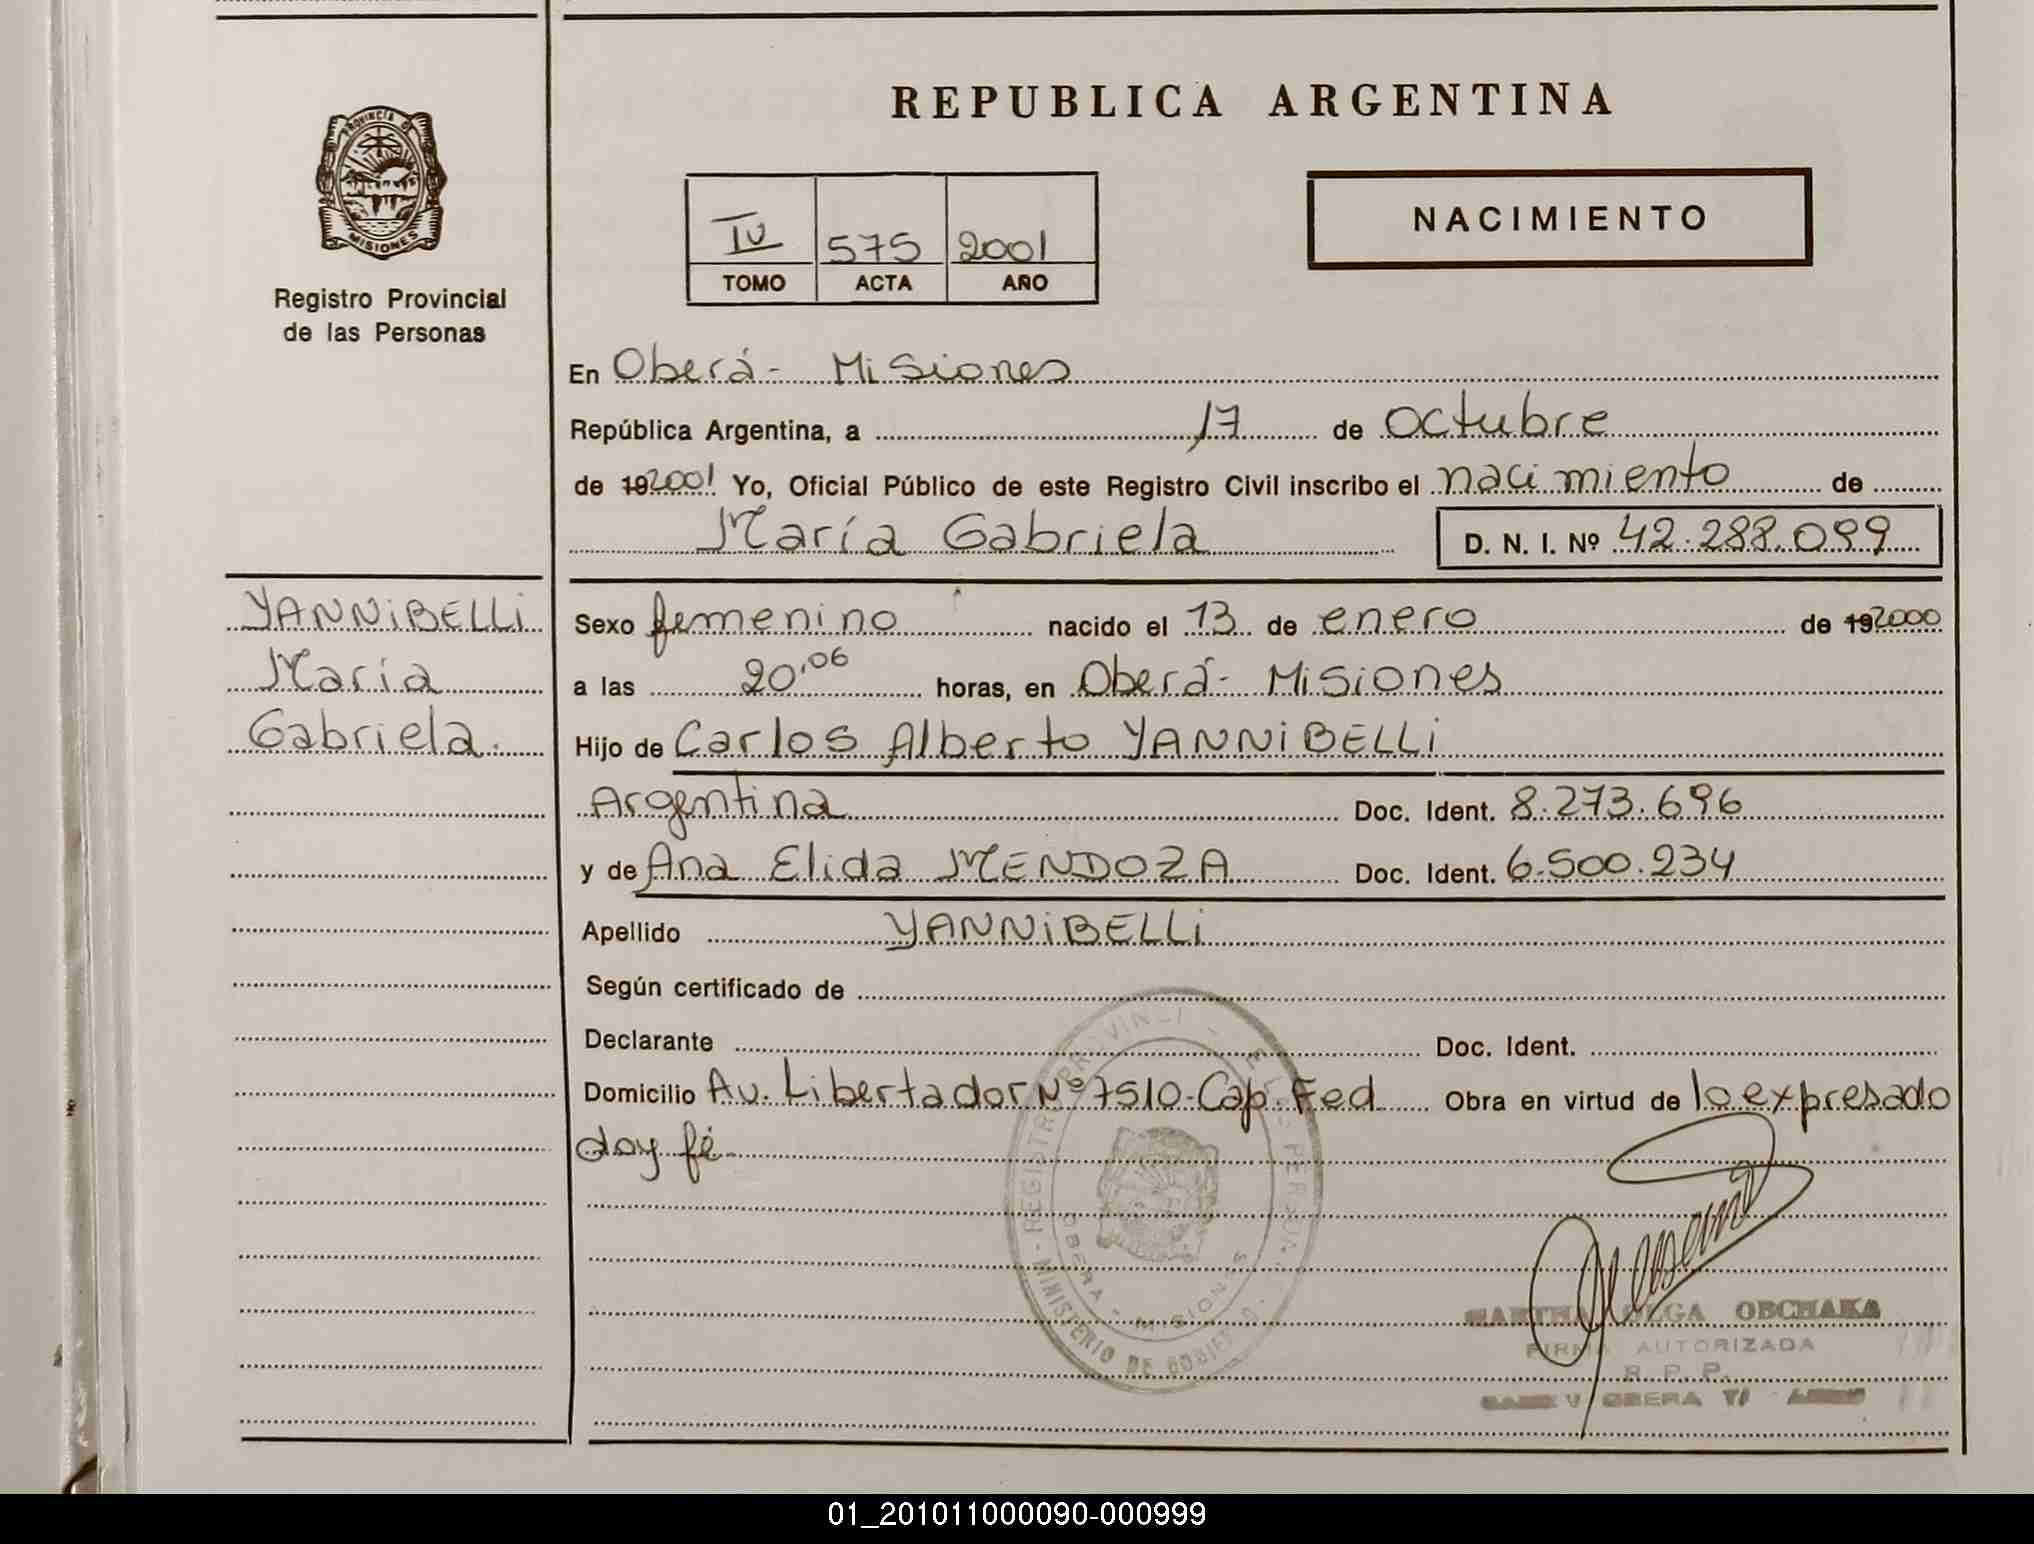 REPUBLICA ARGENTINA
PROVINCIA DE
MISIONES
Registro Provincial
de las Personas
IV 575 2001
TOMO ACTA AÑO
NACIMIENTO
En Oberá - Misiones
República Argentina, a 17 de octubre
de 19 2001 Yo, Oficial Público de este Registro Civil inscribo el nacimiento de
María Gabriela D. N. I. Nº 42.288.099
YANNiBELLi
María
Gabriela.
Sexo femenino nacido el 13 de enero de 19 2000
a las 20,06 horas, en Oberá - Misiones
Hijo de Carlos Alberto YANNiBELLi
Argentina Doc. Ident. 8.273.696
y de Ana Elida MENDOZA Doc. Ident. 6.500.234
Apellido YANNiBELLi
Según certificado de
Declarante Doc. Ident.
Domicilio Av. Libertador Nº 7510-Cap. Fed Obra en virtud de lo expresado
doy fé-
OBERA - MISIONES
MINISTERIO DE
OLGA OBCHAKA
FIRMA AUTORIZADA
R. P. P.
OBERA
01_201011000090-000999